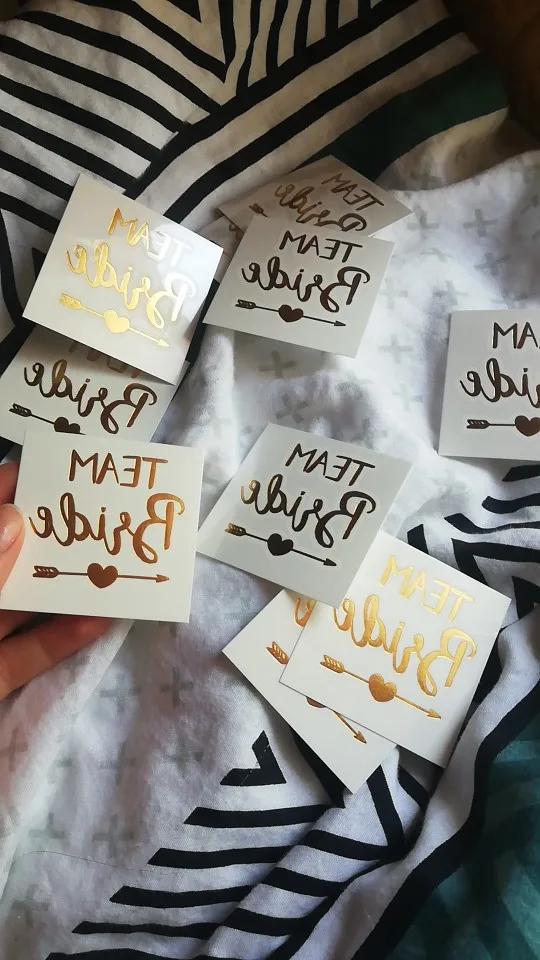 TEAM
Bride
TEAM
Bride
TEAM
Bride
AM
ride
TEAM
Bride
TEAM
Bride
TEAM
Bride
TEAM
Bride